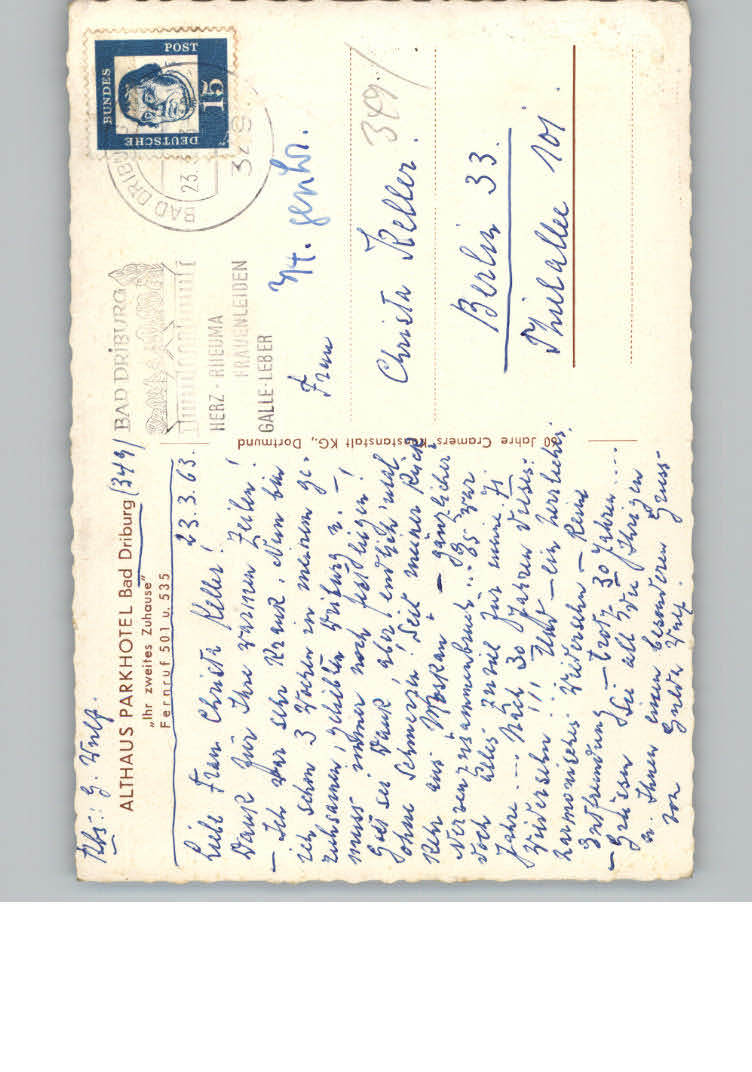 Abs.: G. Wulf.
ALTHAUS PARKHOTEL Bad Driburg (349)
„Ihr zweites Zuhause"
Fernruf 501 u. 535
23.3.63.
Liebe Frau Christa Keller!
Dank für Ihre warmen Zeilen!
– Ich war sehr krank. Nun bin
ich schon 3 Wochen in meinem ge-
ruhsamen, geliebten Driburg u. –
muss immer noch festliegen!
Gott sei Dank aber endlich 'mal
ohne Schmerzen! Seit meiner Rück-
kehr aus Moskau – gänzlicher
Nervenzusammenbruch... Es war
doch alles zuviel für meine 71
Jahre... Nach 30 Jahren dieses
Wiedersehn!!! Und – ein herrliches,
harmonisches Wiedersehn – keine
Entfremdung – trotz 30 Jahren....
– Grüssen Sie all die Ihrigen
u. Ihnen einen besonderen Gruss
von Wulf.
80 Jahre Cramers Kunstanstalt KG., Dortmund
DEUTSCHE
BUNDES
POST
15
BAD DRIBURG
23.
349
BAD DRIBURG
HERZ-RHEUMA
FRAUENLEIDEN
GALLE-LEBER
349/
Frau
Christa Keller.
Berlin 33.
Thielallee 101.